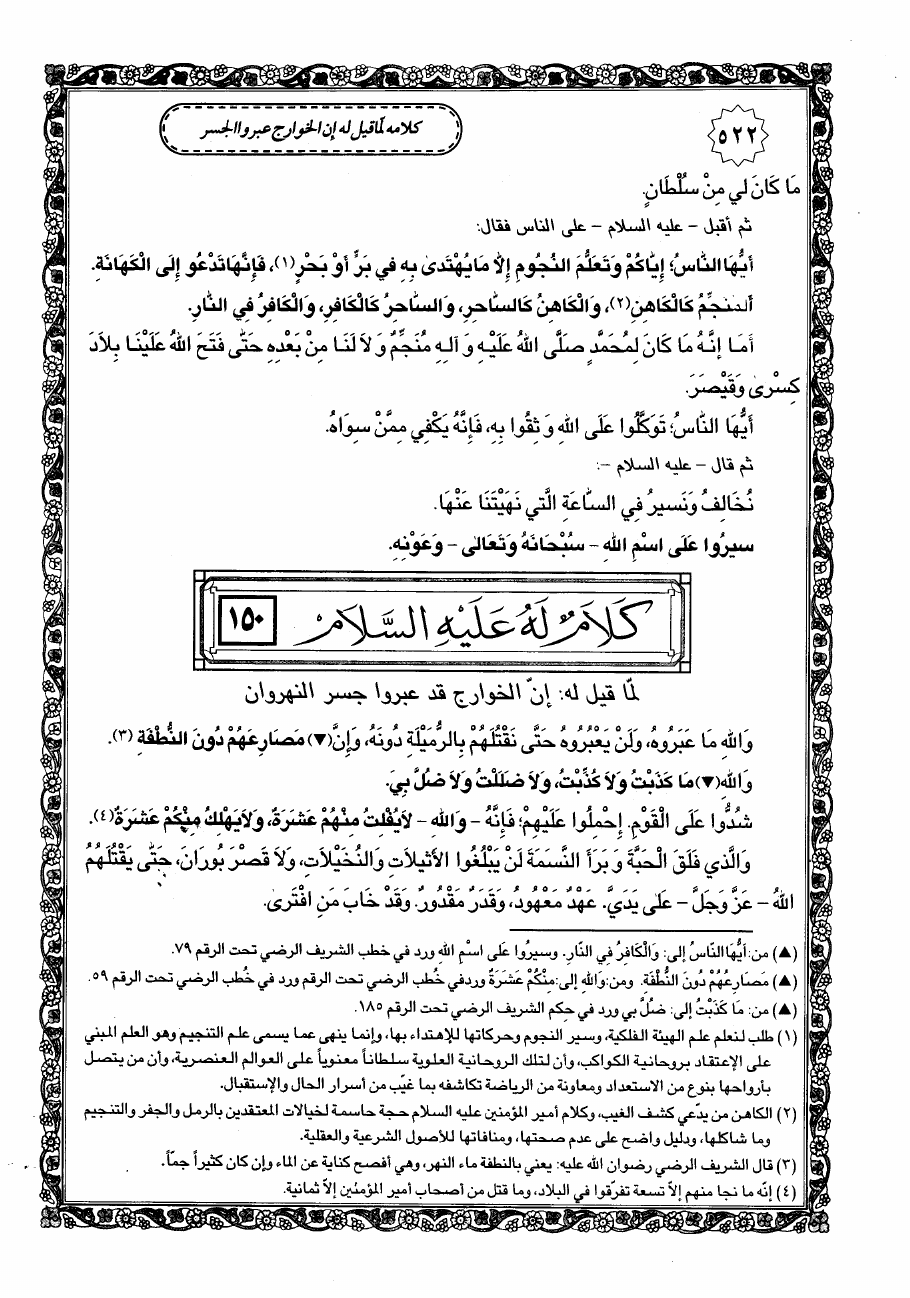 ٥٢٢
كلامه لمّا قيل له إن الخوارج عبروا الجسر
مَا كَانَ لي مِنْ سُلْطَانٍ.
ثم أقبل - عليه السلام - على الناس فقال:
أَيُّهَا النَّاسُ؛ إِيَّاكُمْ وَتَعَلُّمَ النُّجُومِ إِلاَّ مَا يُهْتَدىٰ بِهِ في بَرٍّ أَوْ بَحْرٍ(١)، فَإِنَّهَا تَدْعُو إِلَى الْكَهَانَةِ.
اَلمُنَجِّمُ كَالْكَاهِنِ(٢)، وَالْكَاهِنُ كَالسَّاحِرِ، وَالسَّاحِرُ كَالْكَافِرِ، وَالْكَافِرُ فِي النَّارِ.
أَمَا إِنَّهُ مَا كَانَ لِمُحَمَّدٍ صَلَّى اللهُ عَلَيْهِ وَ آلِهِ مُنَجِّمٌ وَ لاَ لَنَا مِنْ بَعْدِهِ حَتّٰى فَتَحَ اللهُ عَلَيْنَا بِلاَدَ
كِسْرىٰ وَقَيْصَرَ.
أَيُّهَا النَّاسُ؛ تَوَكَّلُوا عَلَى اللهِ وَ ثِقُوا بِهِ، فَإِنَّهُ يَكْفي مِمَّنْ سِوَاهُ.
ثم قال - عليه السلام -:
نُخَالِفُ وَنَسيرُ فِي السَّاعَةِ الَّتي نَهَيْتَنَا عَنْهَا.
سيرُوا عَلَى اسْمِ اللهِ - سُبْحَانَهُ وَتَعَالىٰ - وَعَوْنِهِ.
كَلَامٌ لَهُ عَلَيْهِ السَّلَامْ ١٥٠
لمّا قيل له: إنّ الخوارج قد عبروا جسر النهروان
وَاللهِ مَا عَبَرُوهُ، وَلَنْ يَعْبُرُوهُ حَتّٰى نَقْتُلَهُمْ بِالرُّمَيْلَةِ دُونَهُ، وَإِنَّ(▼) مَصَارِعَهُمْ دُونَ النُّطْفَةِ (٣).
وَاللهِ(▼) مَا كَذَبْتُ وَلاَ كُذِّبْتُ، وَلاَ ضَلَلْتُ وَلاَ ضُلَّ بي.
شُدُّوا عَلَى الْقَوْمِ. إِحْمِلُوا عَلَيْهِمْ؛ فَإِنَّهُ - وَاللهِ - لاَيُفْلِتُ مِنْهُمْ عَشَرَةٌ، وَلاَيَهْلِكُ مِنْكُمْ عَشَرَةٌ(٤).
وَالَّذي فَلَقَ الْحَبَّةَ وَ بَرَأَ النَّسَمَةَ لَنْ يَبْلُغُوا الأُثَيْلاَتِ وَالنُّخَيْلاَتِ، وَلاَ قَصْرَ بُورَانَ، حَتّٰى يَقْتُلَهُمُ
اللهُ - عَزَّ وَجَلَّ - عَلىٰ يَدَيَّ. عَهْدٌ مَعْهُودٌ، وَقَدَرٌ مَقْدُورٌ. وَقَدْ خَابَ مَنِ افْتَرىٰ.
(▲) من: أَيُّهَا النَّاسُ إلى: وَالْكَافِرُ فِي النَّارِ. وسيرُوا عَلى اسْمِ اللهِ ورد في خطب الشريف الرضي تحت الرقم ٧٩.
(▲) مَصَارِعُهُمْ دُونَ النُّطْفَةِ. ومن: وَاللهِ إلى: مِنْكُمْ عَشَرَةٌ ورد في خُطب الرضي تحت الرقم ورد في خُطب الرضي تحت الرقم ٥٩.
(▲) من: مَا كَذَبْتُ إلى: ضُلَّ بي ورد في حكم الشريف الرضي تحت الرقم ١٨٥.
(١) طلب لتعلم علم الهيئة الفلكية، وسير النجوم وحركاتها للإهتداء بها، وإنما ينهى عما يسمى علم التنجيم وهو العلم المبني
على الإعتقاد بروحانية الكواكب، وأن لتلك الروحانية العلوية سلطاناً معنوياً على العوالم العنصرية، وأن من يتصل
بأرواحها بنوع من الاستعداد ومعاونة من الرياضة تكاشفه بما غيّب من أسرار الحال والإستقبال.
(٢) الكاهن من يدّعي كشف الغيب، وكلام أمير المؤمنين عليه السلام حجة حاسمة لخيالات المعتقدين بالرمل والجفر والتنجيم
وما شاكلها، ودليل واضح على عدم صحتها، ومنافاتها للأصول الشرعية والعقلية.
(٣) قال الشريف الرضي رضوان الله عليه: يعني بالنطفة ماء النهر، وهي أفصح كناية عن الماء وإن كان كثيراً جمّاً.
(٤) إنّه ما نجا منهم إلاّ تسعة تفرّقوا في البلاد، وما قتل من أصحاب أمير المؤمنين إلاّ ثمانية.